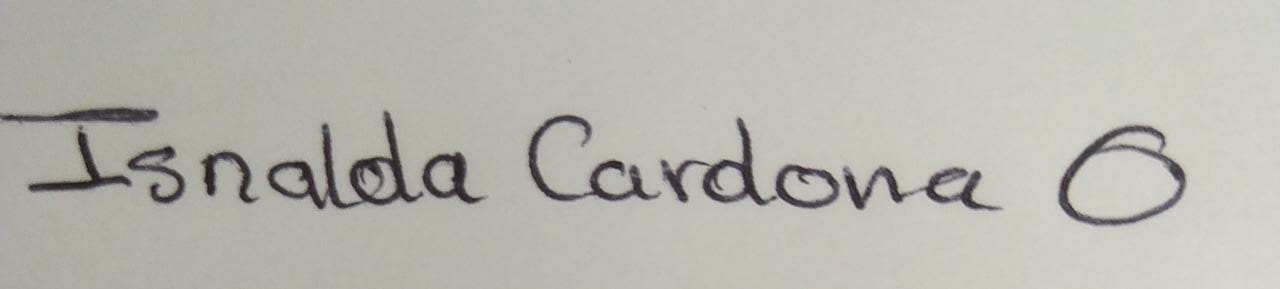 Isnalda Cardona O